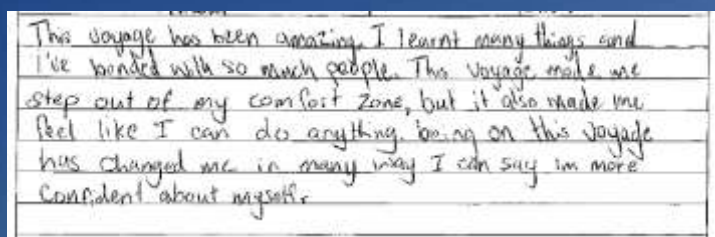 This voyage has been amazing. I learnt many things and
I've bonded with so much people. This voyage made me
step out of my comfort zone, but it also made me
feel like I can do anything. being on this voyage
has changed me in many way I can say im more
confident about myself.